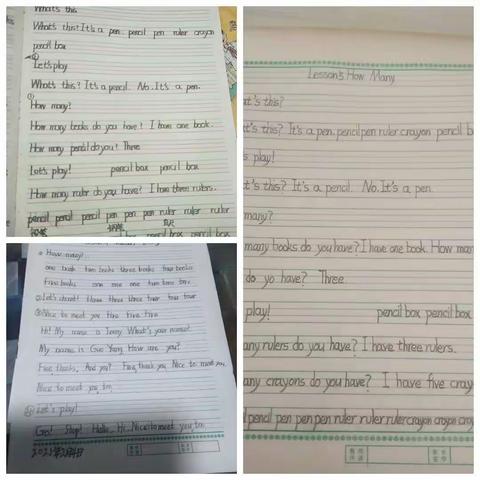 What's this
What's this? It's a pen pencil pen ruler crayon
pencil box
Let's play
What's this? It's a pencil. No. It's a pen.
How many?
How many books do you have? I have one book.
How many pencil do you? Three
Let's play! pencil box pencil box
How many ruler do you have? I have three rulers.
pencil pencil pencil pen pen pen ruler ruler ruler
box pencil box pencil box
How many?
one book two books three books four books
five books one one one two two two
Let's chant! three three three four four four
Nice to meet you five five five
Hi! My name is Jenny What's your name?
My name is Guo Yang. How are you?
Fine thanks. And you? Fine, thank you. Nice to meet you.
Nice to meet you, too.
Let's play!
Go! Stop! Hello, Hi. Nice to meet you, too.
Lesson5 How Many
at's this?
t's this? It's a pen. pencil pen ruler crayon pencil b
s play!
t's this? It's a pencil. No. It's a pen.
many?
many books do you have? I have one book. How man
do yo have? Three
play! pencil box pencil box
any rulers do you have? I have three rulers.
any crayons do you have? I have five cray
l pencil pen pen pen ruler ruler ruler crayon crayon cray